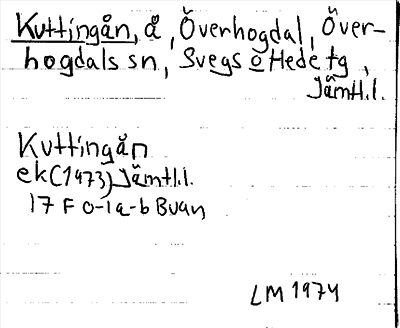 Kuttingån, å, Överhogdal, Över-
hogdals sn, Svegs o Hede tg,
Jämtl.l.
Kuttingån
ek(1973)Jämtl.l.
17 F 0-1a-b Buan
LM 1974